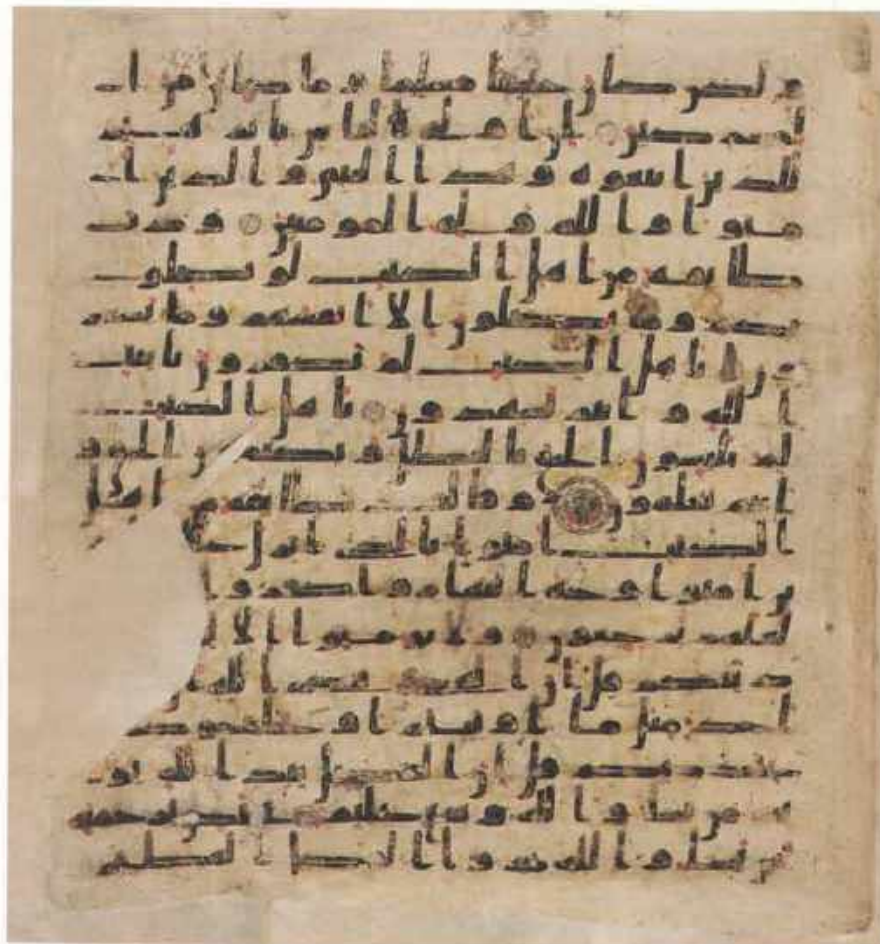 و لكن كان حنيفا مسلما و ما كان من ا
لمشركين ان اولى الناس بابرهيم
للذين اتبعوه و هذا النبى و الذين ا
منوا و الله ولى المومنين ودت
طائفة من اهل الكتب لو يضلو
نكم وما يضلون الا انفسهم وما يشعر
ون ياهل الكتب لم تكفرون بايت
الله و انتم تشهدون ياهل الكتب
لم تلبسون الحق بالبطل و تكتمون الحق و
انتم تعلمون و قالت طائفة من اهل
الكتب امنوا بالذى انزل
ين امنوا وجه النهار واكفروا
لعلهم يرجعون و لا تومنوا الا
دينكم قل ان الهدى هدى الله
احد مثل ما اوتيتم او يحاجوكم
عند ربكم قل ان الفضل بيد الله يو
تيه من يشا و الله وسع عليم يختص برحمته
من يشا و الله ذو الفضل العظيم